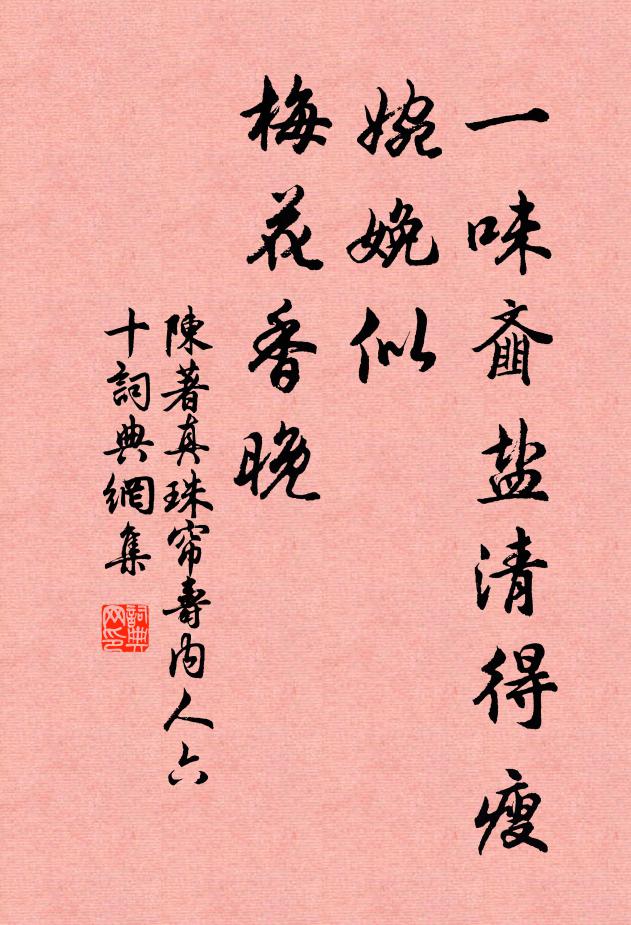 一味齑盐清得瘦
婉娩似
梅花香晚
陳著真珠帘壽内人六
十詞典網集
詞典网印